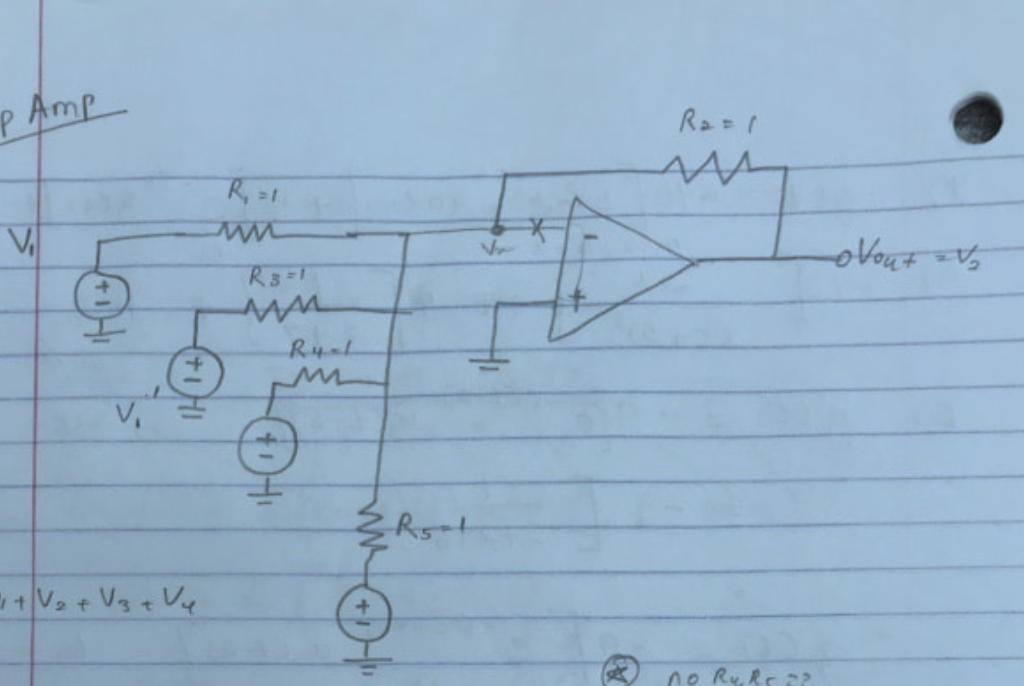 p Amp
R2 = 1
R1 = 1
V1
V-
X
-
+
Vout = V2
R3 = 1
+
-
R4 = 1
+
-
V1'
+
-
R5 = 1
+
-
1 + V2 + V3 + V4
no R4, R5 =>